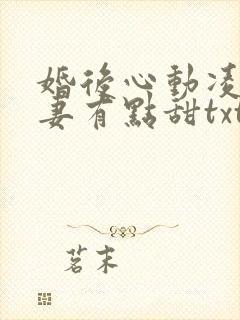 婚後心動凌
妻有點甜txt
茗末